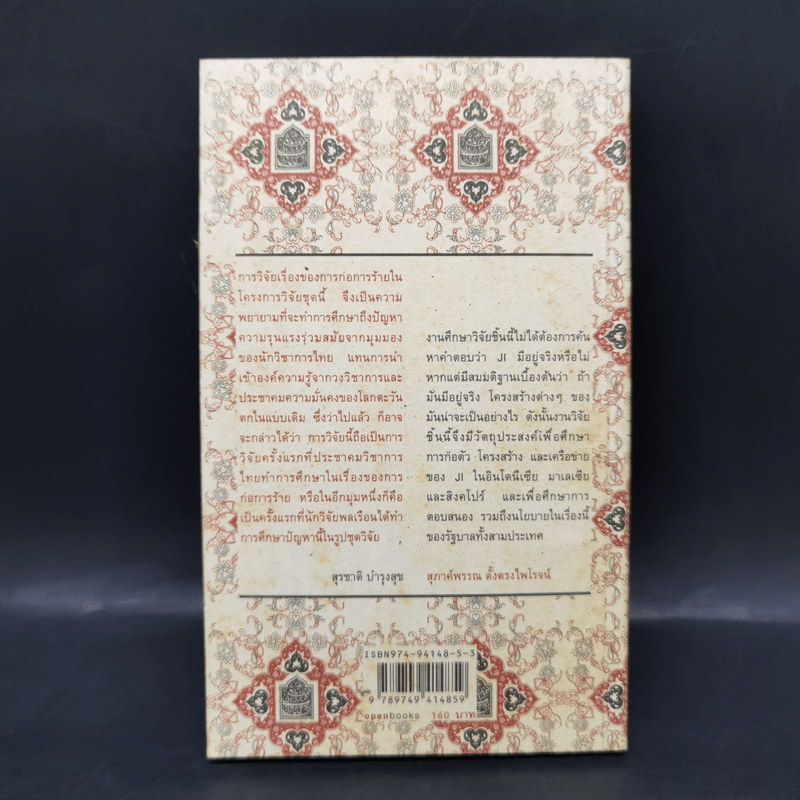 การวิจัยเรื่องของการก่อการร้ายใน
โครงการวิจัยชุดนี้ จึงเป็นความ
พยายามที่จะทำการศึกษาถึงปัญหา
ความรุนแรงร่วมสมัยจากมุมมอง
ของนักวิชาการไทย แทนการนำ
เข้าองค์ความรู้จากวงวิชาการและ
ประชาคมความมั่นคงของโลกตะวัน
ตกในแบบเดิม ซึ่งว่าไปแล้ว ก็อาจ
จะกล่าวได้ว่า การวิจัยนี้ถือเป็นการ
วิจัยครั้งแรกที่ประชาคมวิชาการ
ไทยทำการศึกษาในเรื่องของการ
ก่อการร้าย หรือในอีกมุมหนึ่งก็คือ
เป็นครั้งแรกที่นักวิจัยพลเรือนได้ทำ
การศึกษาปัญหานี้ในรูปชุดวิจัย
สุรชาติ บำรุงสุข
งานศึกษาวิจัยชิ้นนี้ไม่ได้ต้องการค้น
หาคำตอบว่า JI มีอยู่จริงหรือไม่
หากแต่มีสมมติฐานเบื้องต้นว่า ถ้า
มันมีอยู่จริง โครงสร้างต่างๆ ของ
มันน่าจะเป็นอย่างไร ดังนั้นงานวิจัย
ชิ้นนี้จึงมีวัตถุประสงค์เพื่อศึกษา
การก่อตัว โครงสร้าง และเครือข่าย
ของ JI ในอินโดนีเซีย มาเลเซีย
และสิงคโปร์ และเพื่อศึกษาการ
ตอบสนอง รวมถึงนโยบายในเรื่องนี้
ของรัฐบาลทั้งสามประเทศ
สุภาค์พรรณ ตั้งตรงไพโรจน์
ISBN974-94148-5-3
9 789749 414859
openbooks 160 บาท